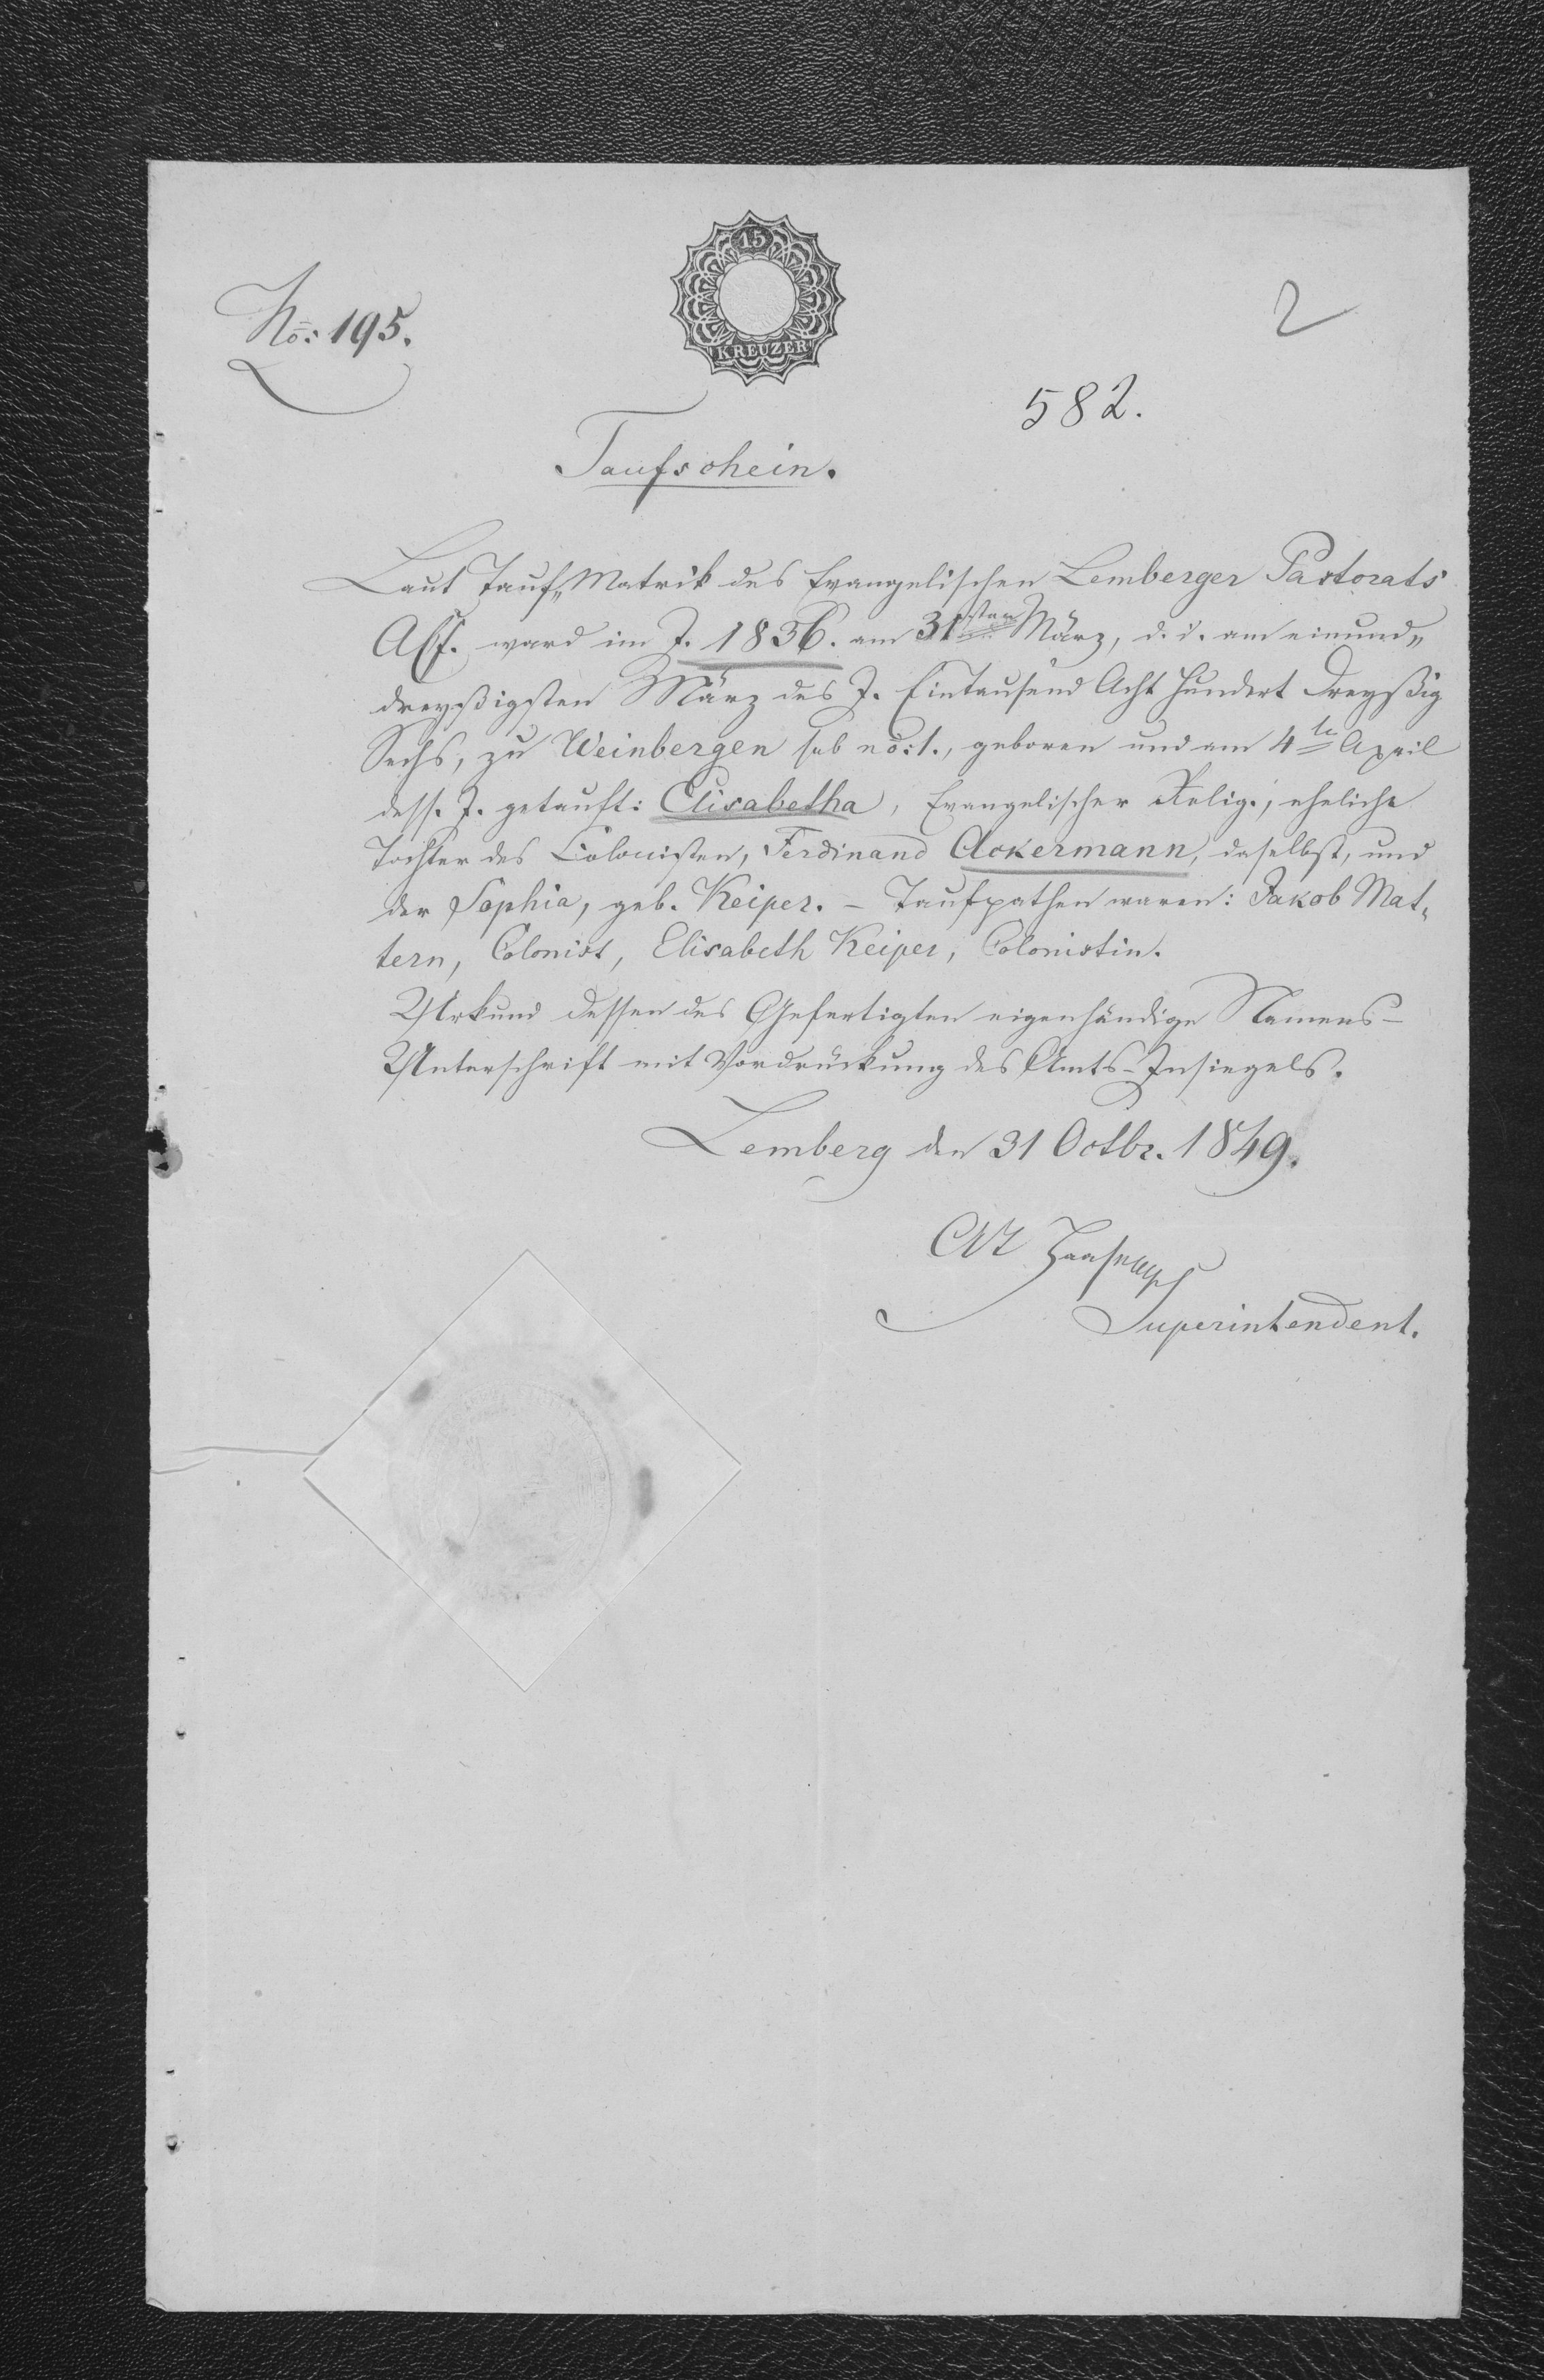 15
KREUZER
2
No: 195.
582.
Taufschein.
Laut Tauf„Matrik des Evangelischen Lemberger Pastorats
ward im J. 1836. am 31sten März, d. i. am einund„
dreyßigsten März des J. Eintausend Acht Hundert Dreyßig
Sechs, zu Weinbergen sub no: 1., geboren und am 4te April
dess. J. getauft: Elisabetha, Evangelischer Relig., eheliche
Tochter des Colonisten, Ferdinand Ackermann, daselbst, und
der Sophia, geb. Keiper. – Taufpathen waren: Jakob Mat„
tern, Colonist, Elisabeth Keiper, Colonistin.
Urkund dessen des Gefertigten eigenhändige Namens-
Unterschrift mit Vordrückung des Amts-Insiegels.
Lemberg den 31 Octbr. 1849.
Haase
Superintendent.